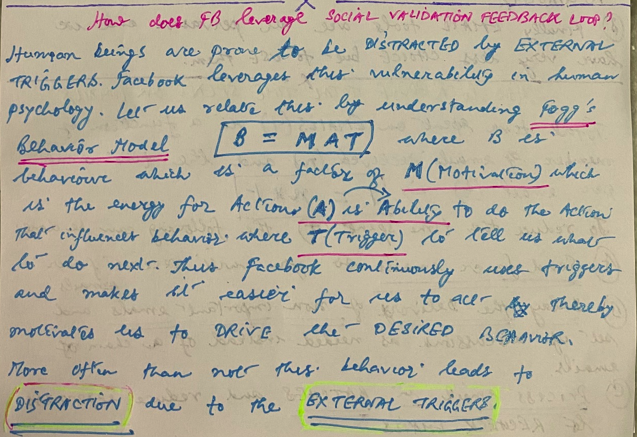 How does FB leverage SOCIAL VALIDATION FEEDBACK LOOP?
Human beings are prone to be DISTRACTED by EXTERNAL
TRIGGERS. Facebook leverages this vulnerability in human
psychology. Let us relate this by understanding Fogg's
Behavior Model B = MAT where B is
behaviour which is a factor of M (Motivation) which
is the energy for Action (A) is Ability to do the Action
that influences behavior where T (Trigger) to tell us what
to do next. Thus Facebook continuously uses triggers
and makes it easier for us to act thereby
motivates us to DRIVE the DESIRED BEHAVIOR.
More often than not this behavior leads to
DISTRACTION due to the EXTERNAL TRIGGERS.